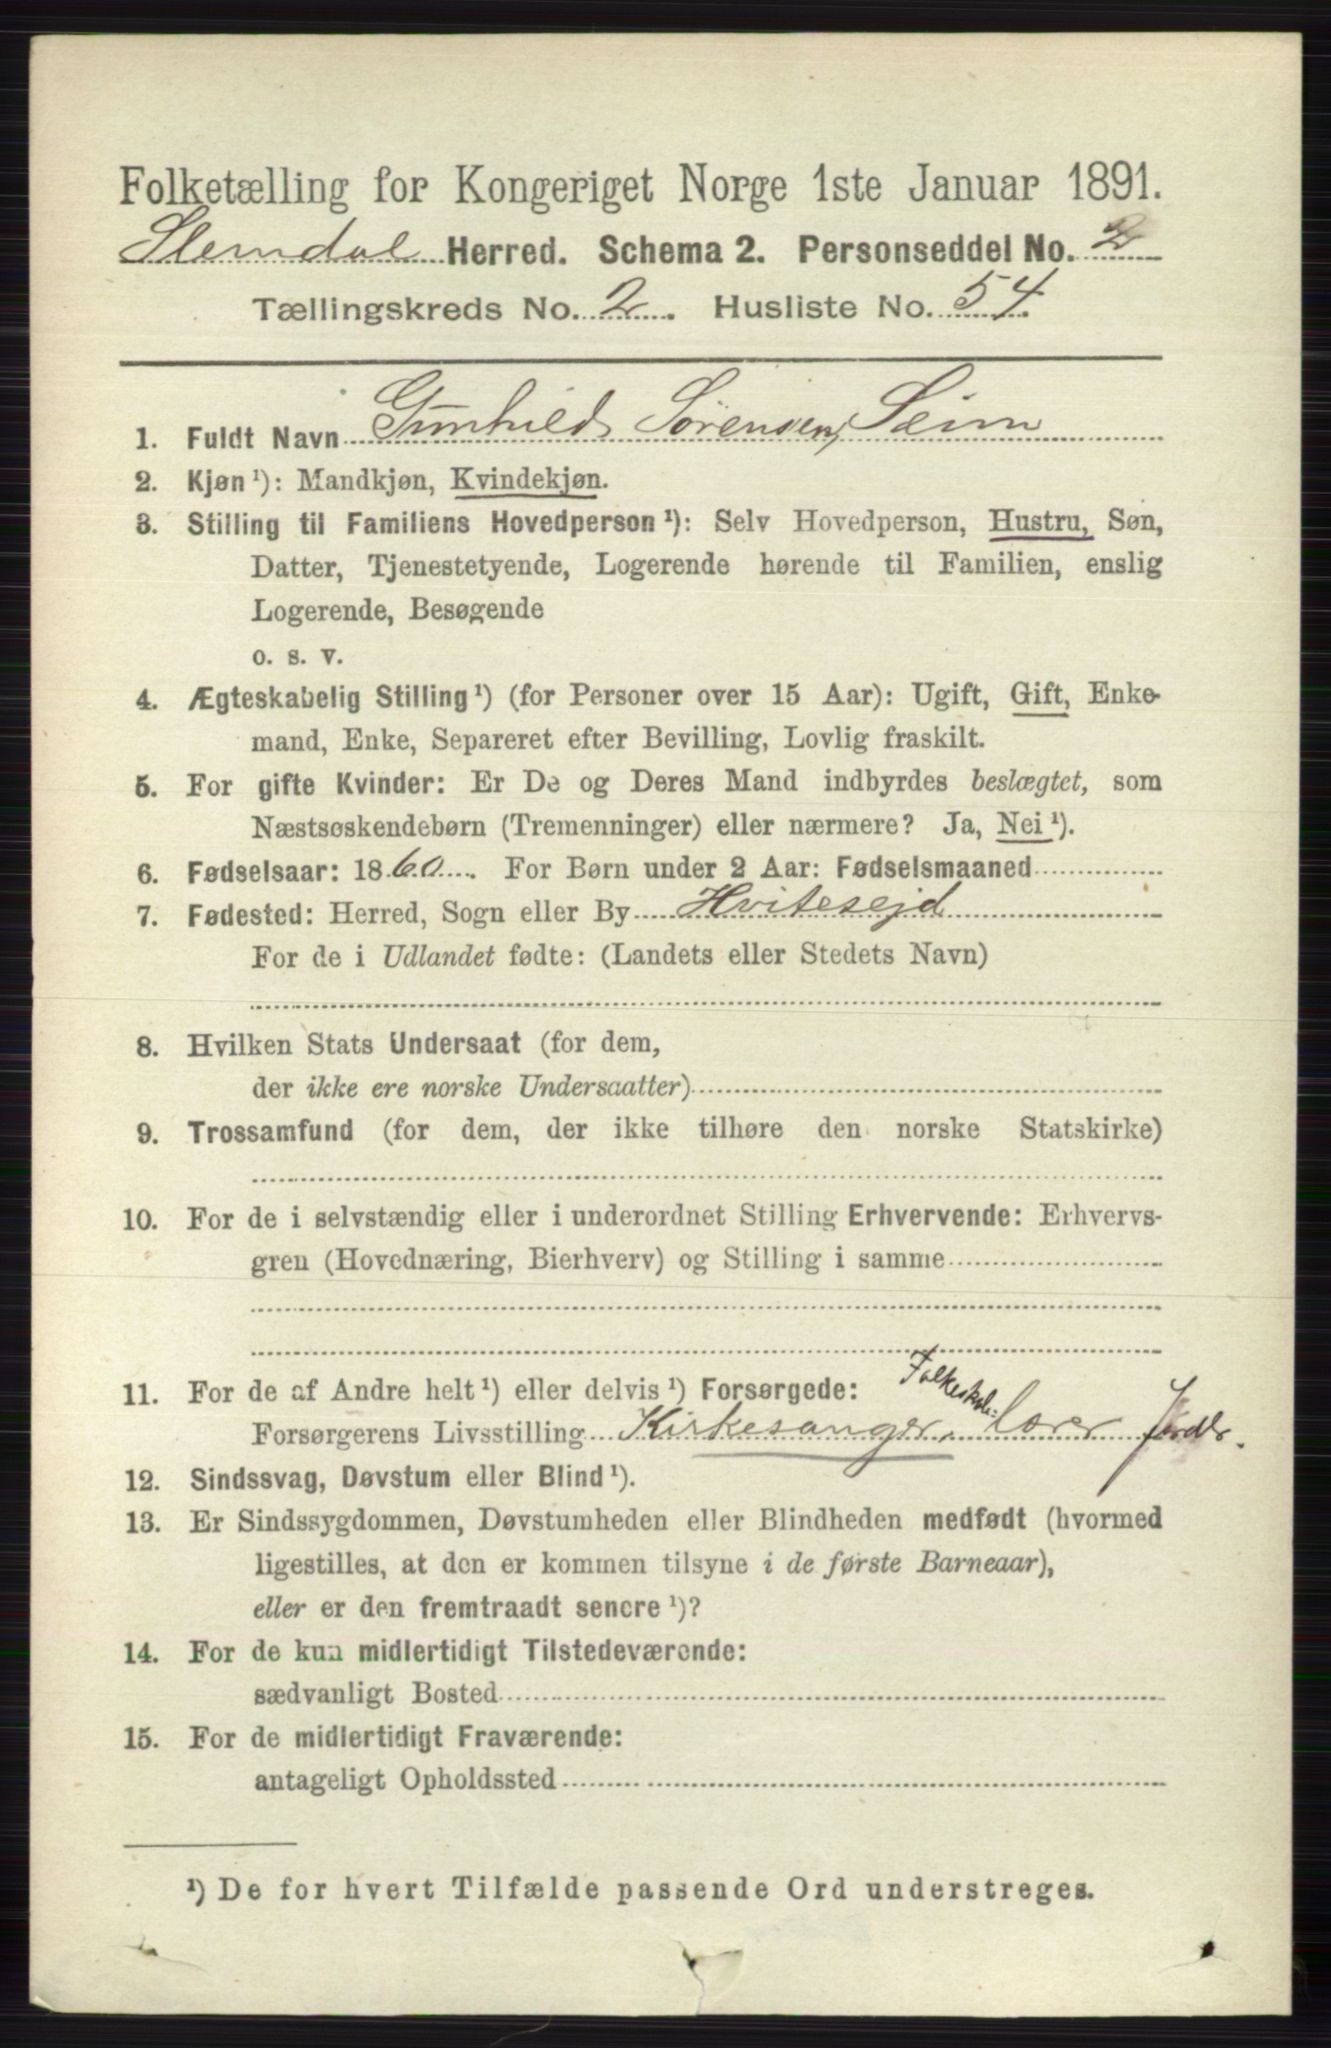 Folketælling for Kongeriget Norge 1ste Januar 1891.
Slemdal Herred. Schema 2. Personseddel No. 2
Tællingskreds No. 2. Husliste No. 54.
1. Fuldt Navn Gunhild Sørensen, Seim
2. Kjøn ¹): Mandkjøn, Kvindekjøn.
3. Stilling til Familiens Hovedperson ¹): Selv Hovedperson, Hustru, Søn,
Datter, Tjenestetyende, Logerende hørende til Familien, enslig
Logerende, Besøgende
o. s. v.
4. Ægteskabelig Stilling ¹) (for Personer over 15 Aar): Ugift, Gift, Enke-
mand, Enke, Separeret efter Bevilling, Lovlig fraskilt.
5. For gifte Kvinder: Er De og Deres Mand indbyrdes beslægtet, som
Næstsøskendebørn (Tremenninger) eller nærmere? Ja, Nei ¹).
6. Fødselsaar: 1860. For Børn under 2 Aar: Fødselsmaaned
7. Fødested: Herred, Sogn eller By Hvitesejd
For de i Udlandet fødte: (Landets eller Stedets Navn)
8. Hvilken Stats Undersaat (for dem,
der ikke ere norske Undersaatter)
9. Trossamfund (for dem, der ikke tilhøre den norske Statskirke)
10. For de i selvstændig eller i underordnet Stilling Erhvervende: Erhvervs-
gren (Hovednæring, Bierhverv) og Stilling i samme
11. For de af Andre helt ¹) eller delvis ¹) Forsørgede: Folkeskole=
Forsørgerens Livsstilling Kirkesanger, lærer
12. Sindssvag, Døvstum eller Blind ¹).
13. Er Sindssygdommen, Døvstumheden eller Blindheden medfødt (hvormed
ligestilles, at den er kommen tilsyne i de første Barneaar),
eller er den fremtraadt senere ¹)?
14. For de kun midlertidigt Tilstedeværende:
sædvanligt Bosted
15. For de midlertidigt Fraværende:
antageligt Opholdssted
¹) De for hvert Tilfælde passende Ord understreges.